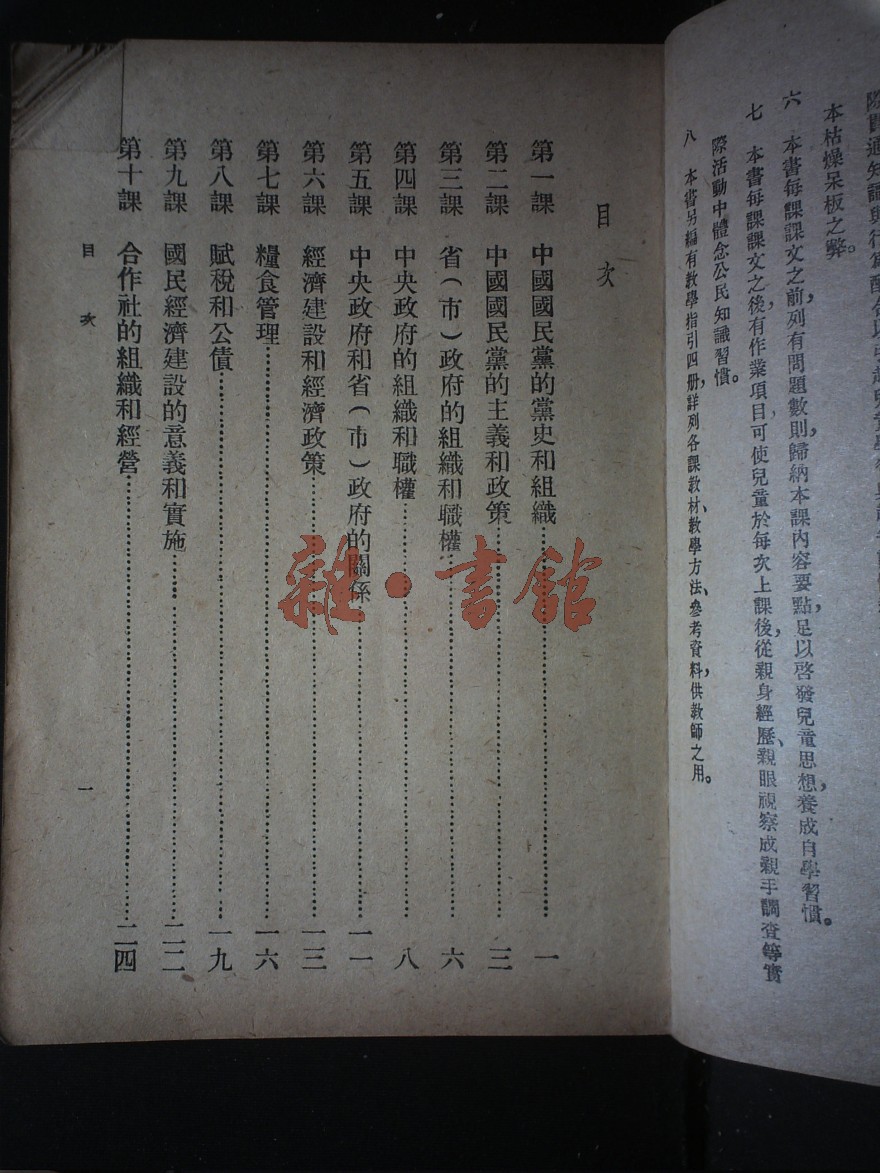 本枯燥呆板之弊。
六 本書每課課文之前，列有問題數則歸納本課內容要點，足以啓發兒童思想，養成自學習慣。
七 本書每課課文之後，有作業項目，可使兒童於每次上課後，從親身經歷、親眼視察或親手調查等實
際活動中體念公民知識習慣。
八 本書另編有教學指引四册，詳列各課教材、教學方法、參考資料，供教師之用。
目次
第一課 中國國民黨的黨史和組織 一
第二課 中國國民黨的主義和政策 三
第三課 省（市）政府的組織和職權 六
第四課 中央政府的組織和職權 八
第五課 中央政府和省（市）政府的關係 一一
第六課 經濟建設和經濟政策 一三
第七課 糧食管理 一六
第八課 賦稅和公債 一九
第九課 國民經濟建設的意義和實施 二二
第十課 合作社的組織和經營 二四
目次 一
雜·書館